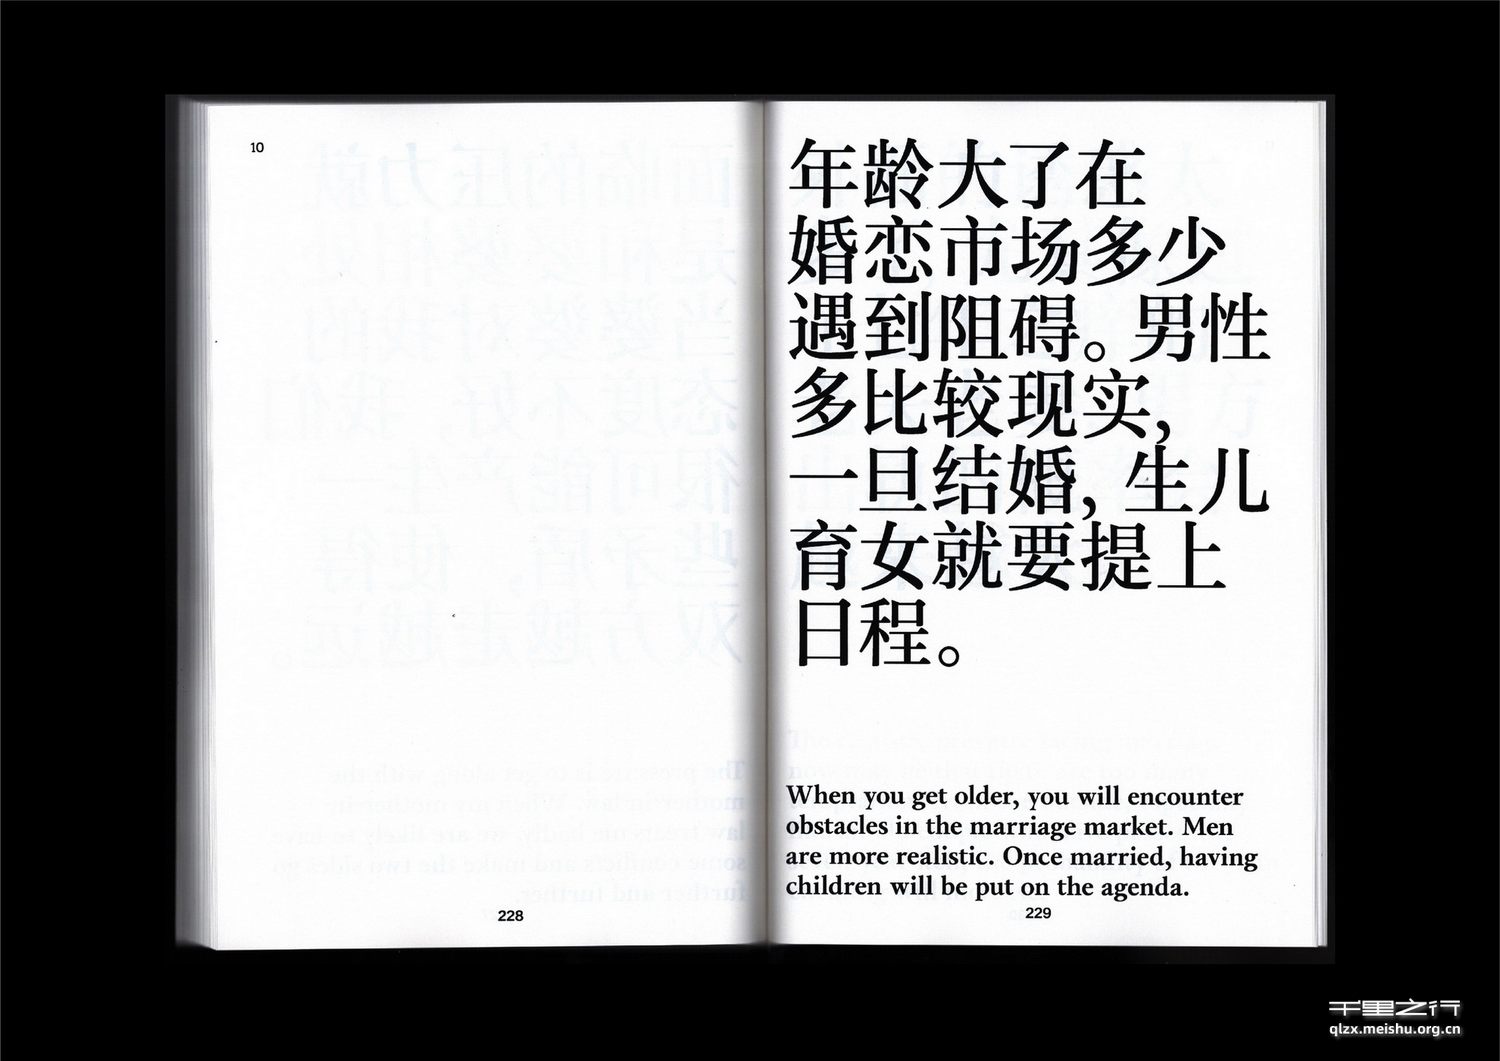 10
228
年龄大了在
婚恋市场多少
遇到阻碍。男性
多比较现实，
一旦结婚，生儿
育女就要提上
日程。
When you get older, you will encounter
obstacles in the marriage market. Men
are more realistic. Once married, having
children will be put on the agenda.
229
千里之行
qlzx.meishu.org.cn